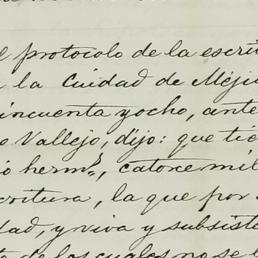 l protocolo de la escri
la Cuidad de Méji
incuenta y ocho, ante
o Vallejo, dijo: que tie
ó herm.s, catorce mil
critura, la que por
dad, y viva y subsiste
de los cuales no se